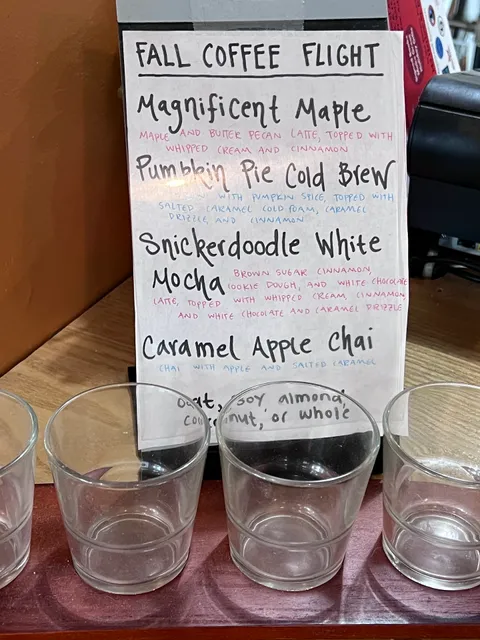 FALL COFFEE FLIGHT
Magnificent Maple
MAPLE AND BUTTER PECAN LATTE, TOPPED WITH
WHIPPED CREAM AND CINNAMON
Pumpkin Pie Cold Brew
WITH PUMPKIN SPICE, TOPPED WITH
SALTED CARAMEL COLD FOAM, CARAMEL
DRIZZLE, AND CINNAMON
Snickerdoodle White
Mocha BROWN SUGAR CINNAMON,
COOKIE DOUGH, AND WHITE CHOCOLATE
LATTE, TOPPED WITH WHIPPED CREAM, CINNAMON
AND WHITE CHOCOLATE AND CARAMEL DRIZZLE
Caramel Apple Chai
CHAI WITH APPLE AND SALTED CARAMEL
oat, soy almond,
coconut, or whole